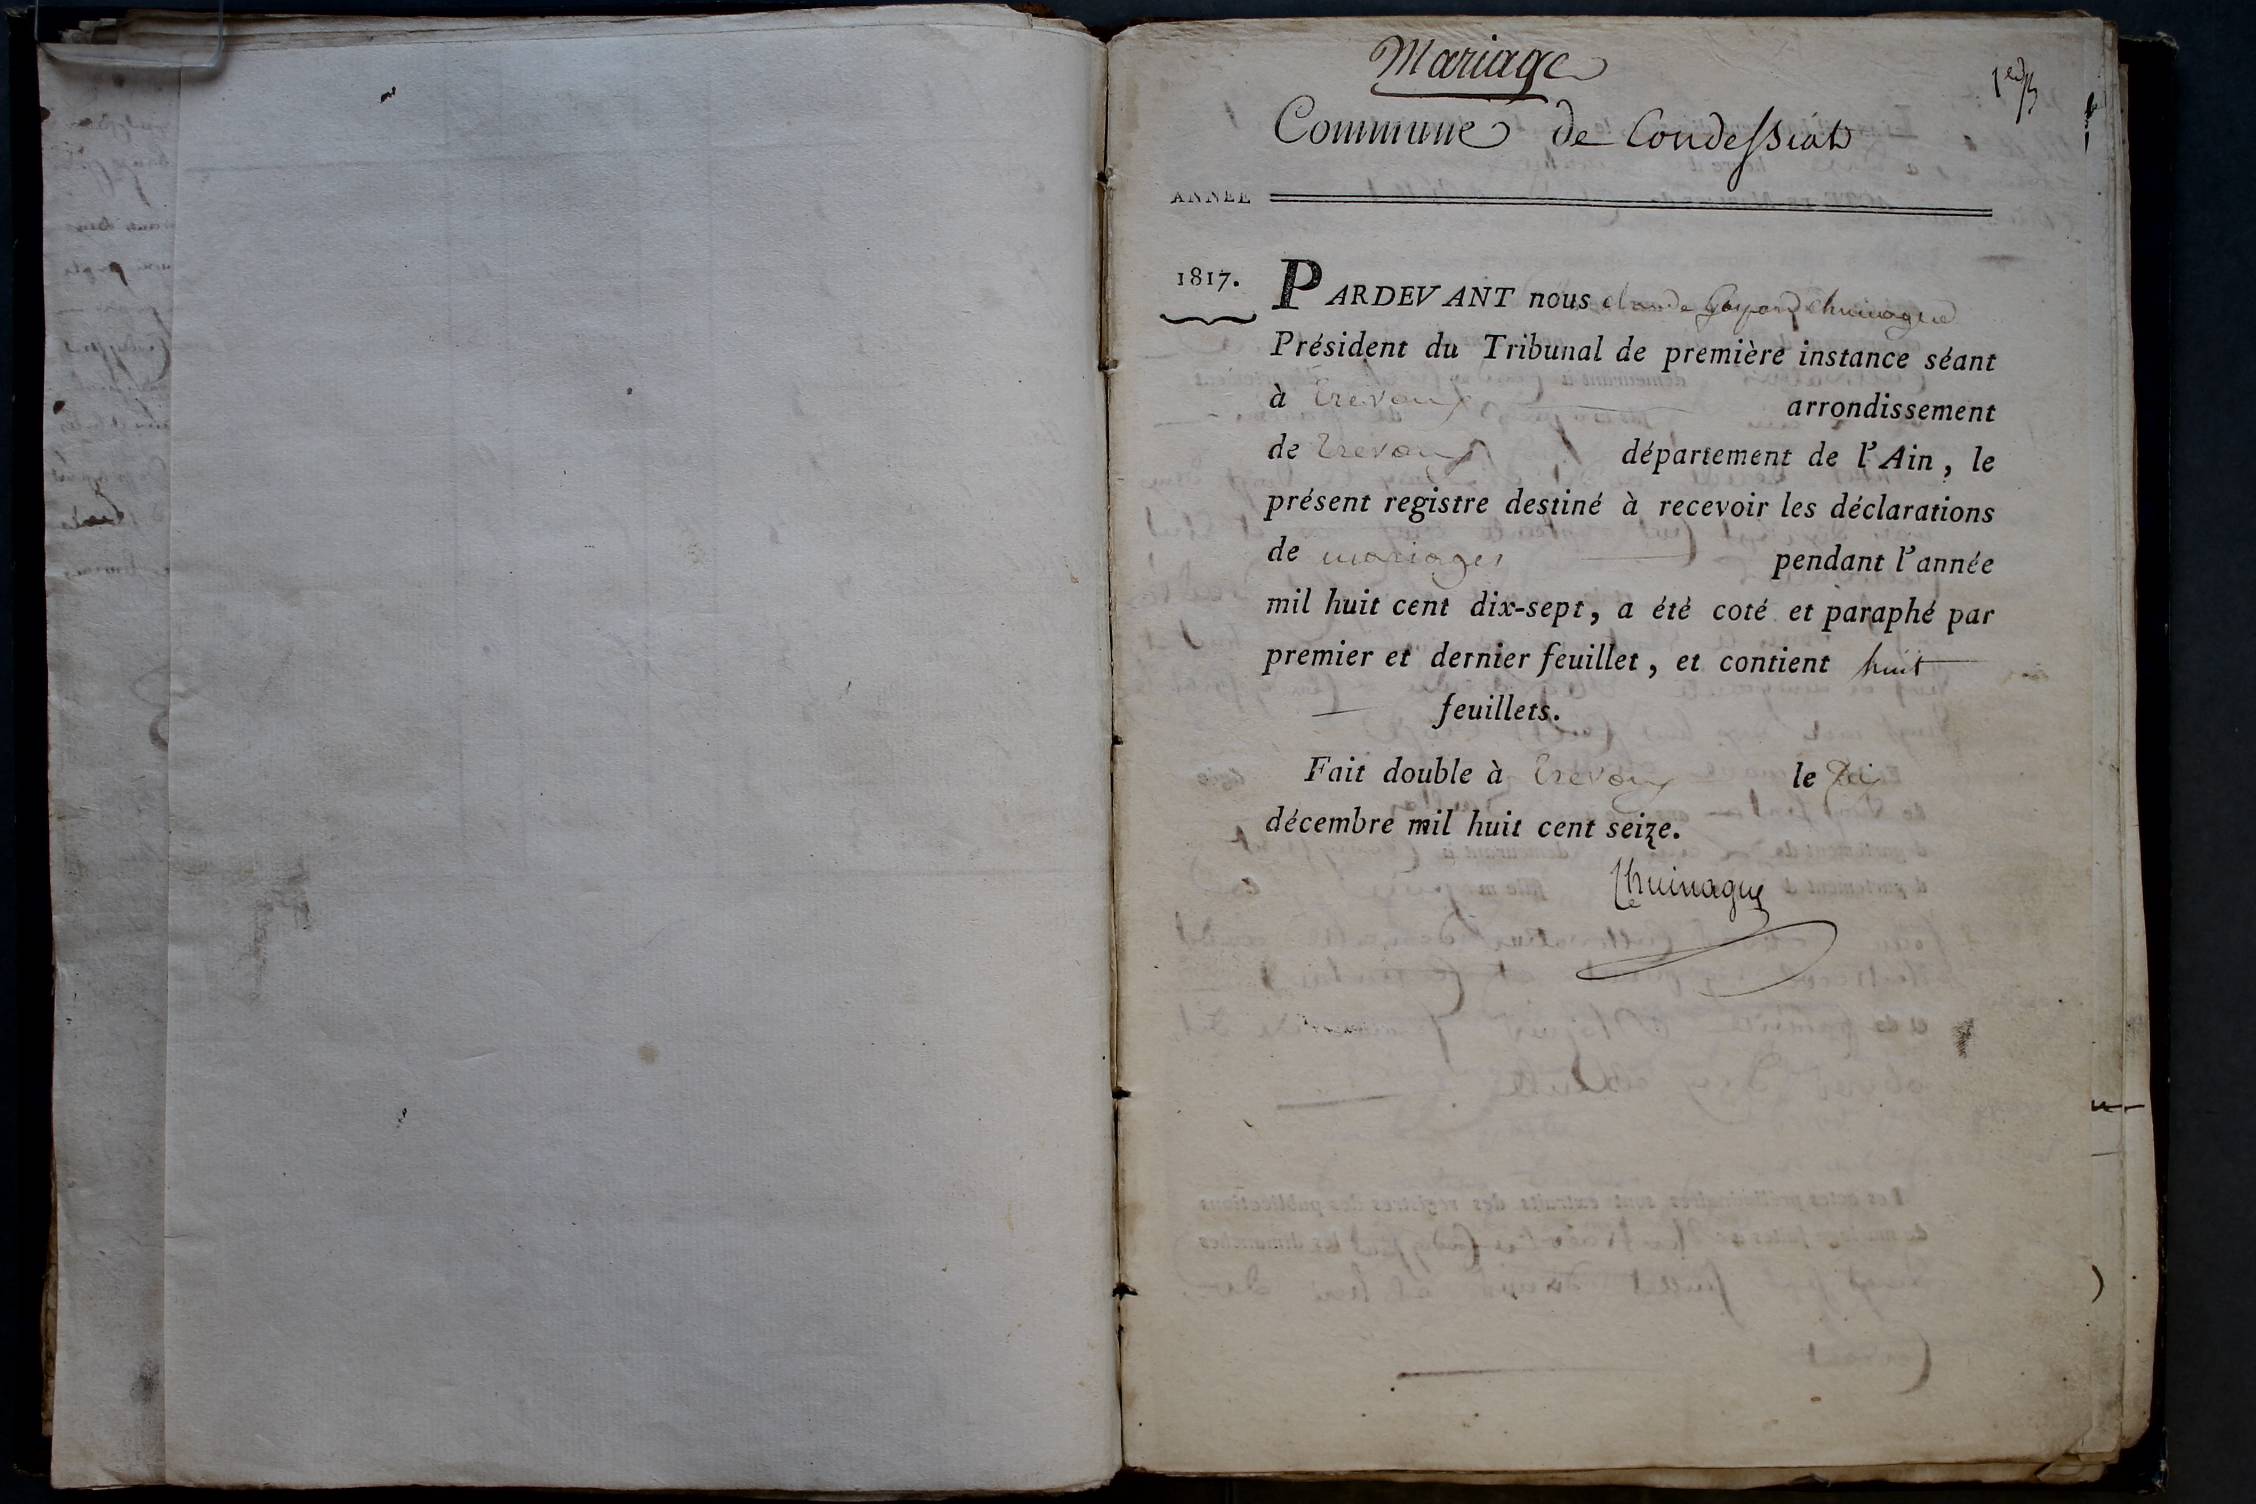 Mariage
Commune de Condessiat
ANNÉE
1817.
PARDEVANT nous claude gaspard thuinague
Président du Tribunal de première instance séant
à trevoux arrondissement
de trevoux département de l'Ain, le
présent registre destiné à recevoir les déclarations
de mariages pendant l'année
mil huit cent dix-sept, a été coté et paraphé par
premier et dernier feuillet, et contient huit
feuillets.
Fait double à trevoux le
décembre mil huit cent seize.